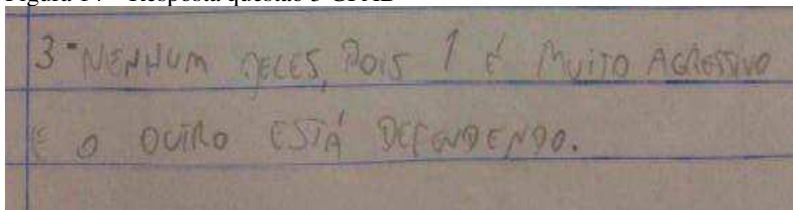 3- NENHUM DELES, POIS 1 É MUITO AGRESSIVO
E O OUTRO ESTÁ DEFENDENDO.